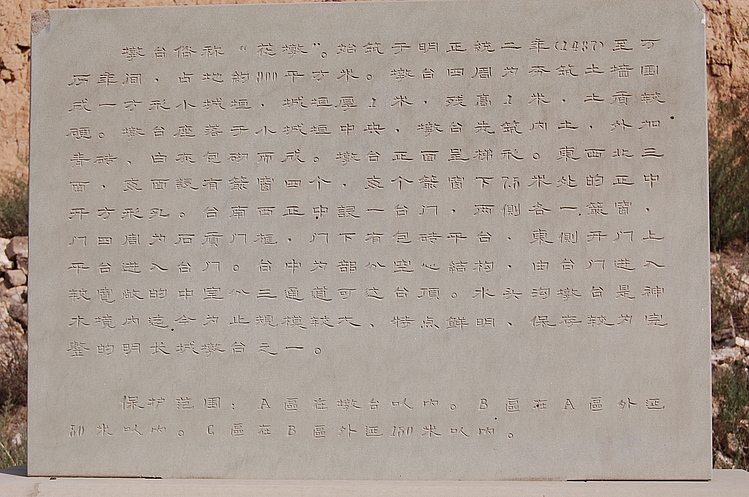 墩台俗称“花墩”。始筑于明正統二年(1437)至万
历年间，占地約900平方米。墩台四周为夯筑土墙围
成一方形小城垣，城垣厚1米，残高1米，土质较
硬。墩台座落于小城垣中央，墩台先筑内土，外加
青砖，白灰包砌而成。墩台正面呈梯形。東、西、北三
面，每面設有箭窗四个，每个箭窗下7.5米处的正中
开方形孔。台南面正中設一台门，两侧各一箭窗，
门四周为石质门框，门下有包砖平台，東侧开门上
平台進入台门。台中部为空心結构，由台门進入
较窗敞的中室，三道可达台頂。水头沟墩台是神
木境内迄今为止規模较大，特点鲜明，保存较为完
整的明长城墩台之一。
保护范围：A區在墩台以内。B區在A區外延
50米以内。C區在B區外延150米以内。